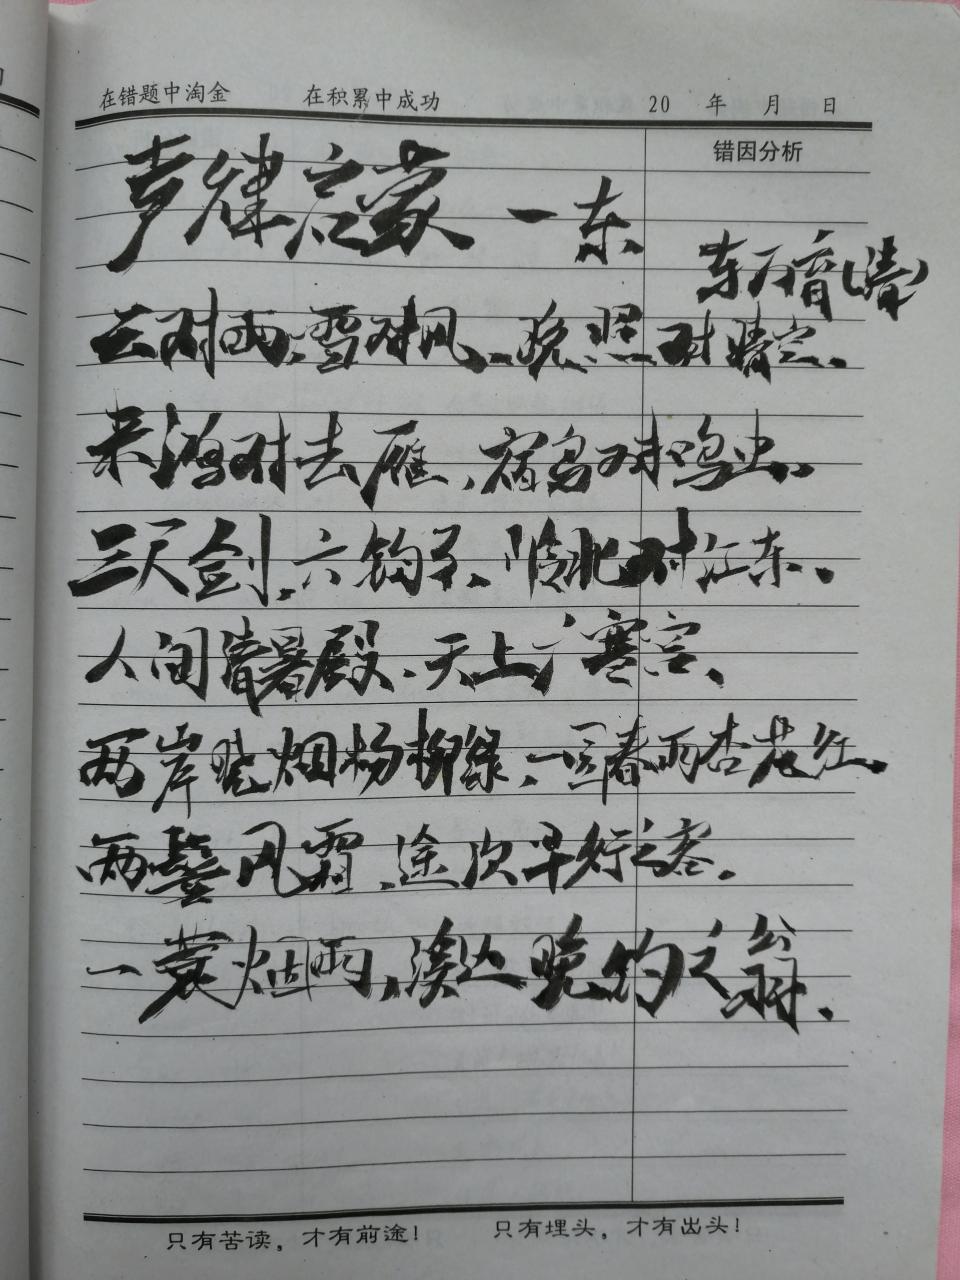 在错题中淘金 在积累中成功 20 年 月 日
错因分析
声律启蒙 一东
云对雨,雪对风,晚照对晴空。
来鸿对去雁,宿鸟对鸣虫。
三尺剑,六钧弓,岭北对江东。
人间清暑殿,天上广寒宫。
两岸晓烟杨柳绿,一园春雨杏花红。
两鬓风霜,途次早行之客。
一蓑烟雨,溪边晚钓之翁。
只有苦读,才有前途! 只有埋头,才有出头!